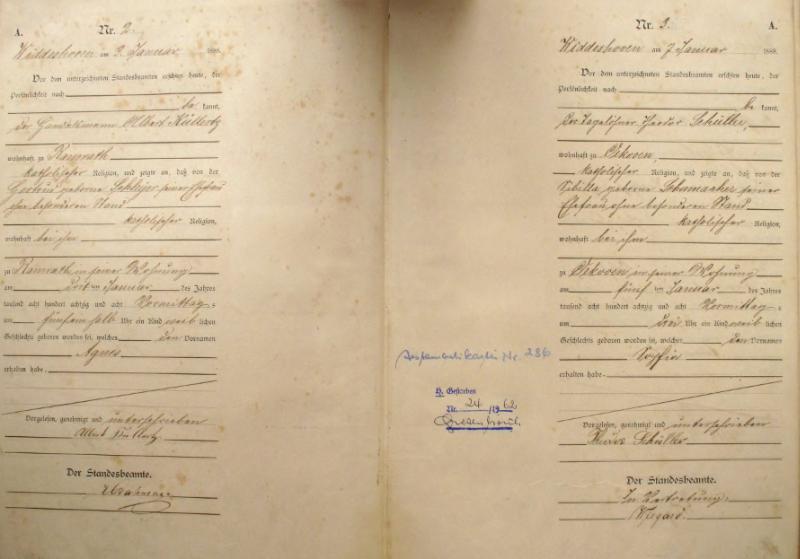 A.
Nr. 2.
Widdeshoven am 3. Januar 1888.
Vor dem unterzeichneten Standesbeamten erschien heute, der
Persönlichkeit nach
be kannt,
der Handelsmann Albert
wohnhaft zu Ramrath
katholischer Religion, und zeigte an, daß von der
geborne seiner Ehefrau
ohne besonderen Stand
katholischer Religion,
wohnhaft bei ihm
zu Ramrath in seiner Wohnung
am ten Januar des Jahres
tausend acht hundert achtzig und acht Vormittags
um fünfeinhalb Uhr ein Kind weib lichen
Geschlechts geboren worden sei, welches den Vornamen
Agnes
erhalten habe.
Vorgelesen, genehmigt und unterschrieben
Albert
Der Standesbeamte.
Nr. 3.
A.
Widdeshoven am 7 Januar 1888.
Vor dem unterzeichneten Standesbeamten erschien heute, der
Persönlichkeit nach
be kannt,
Der Tagelöhner Theodor Schüller,
wohnhaft zu Oekoven,
katholischer Religion, und zeigte an, daß von der
Sibilla geborne Schumacher seiner
Ehefrau ohne besonderen Stand
katholischer Religion,
wohnhaft bei ihm
zu Oekoven, in seiner Wohnung
am fünften Januar des Jahres
tausend acht hundert achtzig und acht Vormittags
um drei Uhr ein Kind weib lichen
Geschlechts geboren worden sei, welches den Vornamen
Sophia
erhalten habe.
Vorgelesen, genehmigt und unterschrieben
Schüller
Der Standesbeamte.
In Vertretung.
Nr. 286
Gestorben
Nr. 24 /1962